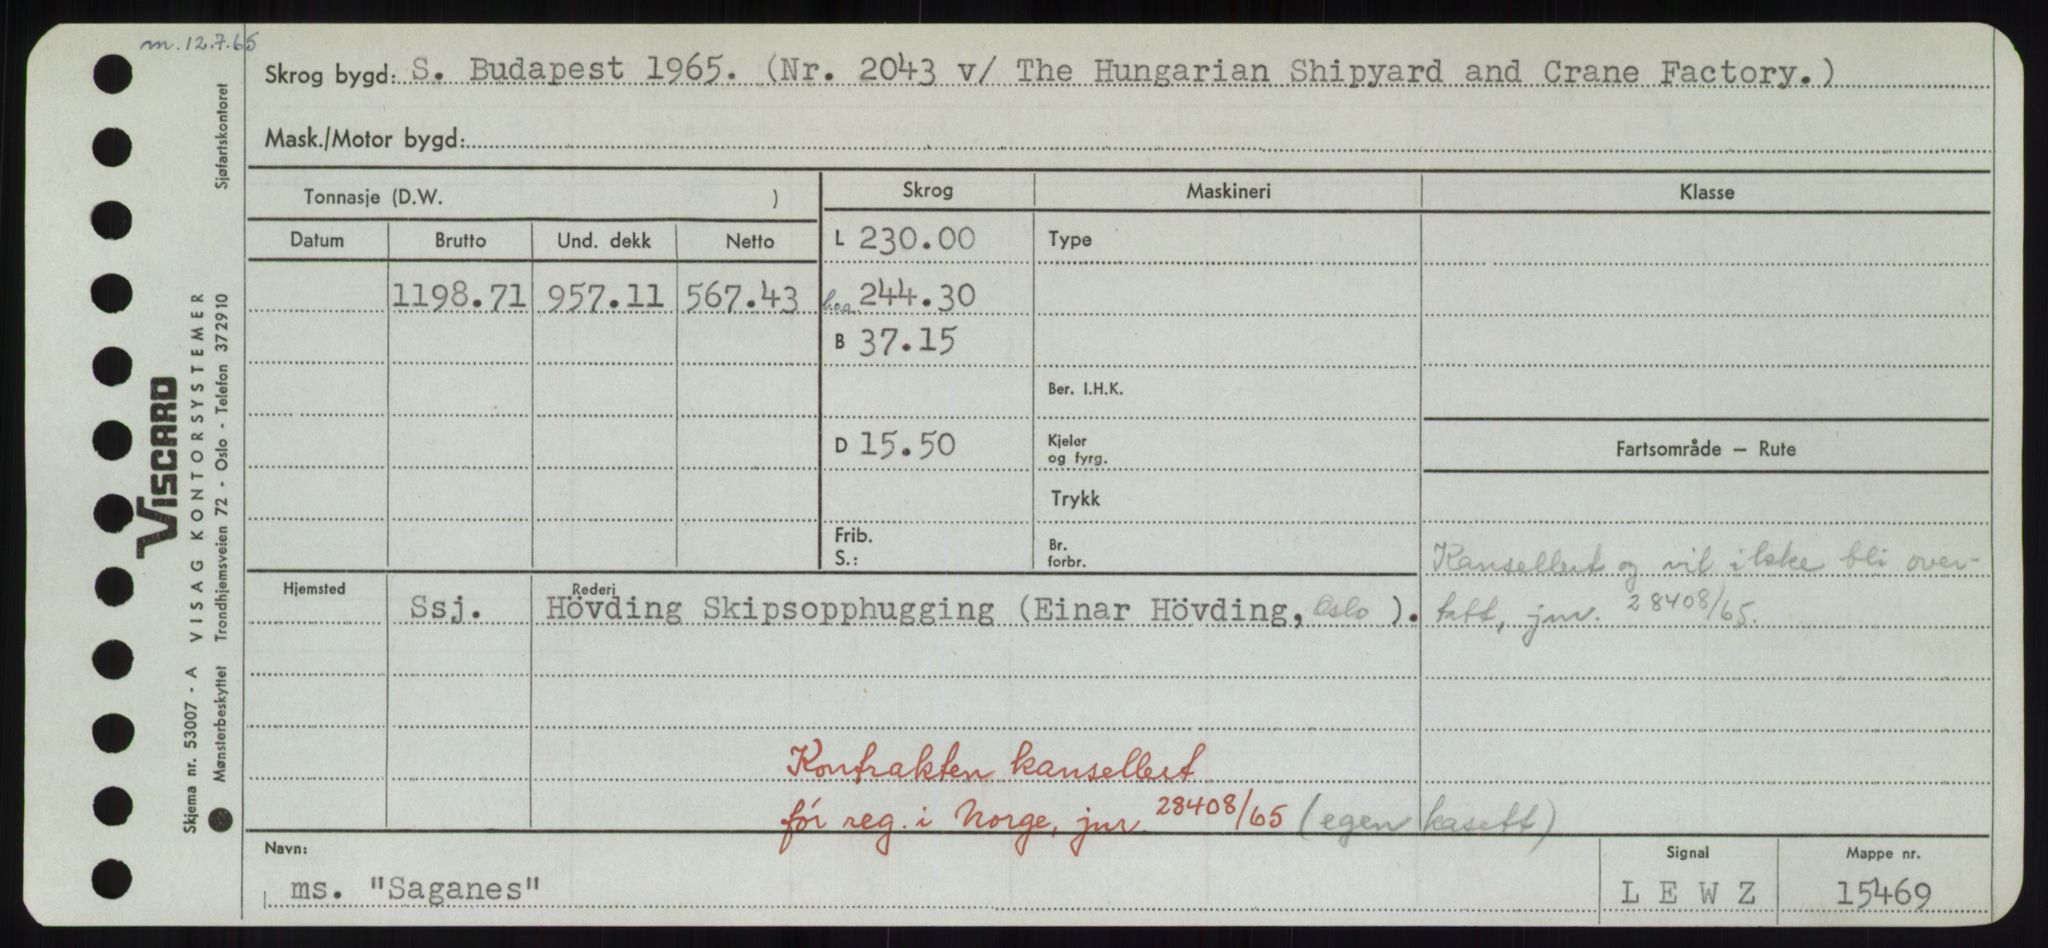 m. 12.7.65
Skrog bygd: S. Budapest 1965. (Nr. 2043 v/ The Hungarian Shipyard and Crane Factory.)
Mask./Motor bygd:
Tonnasje (D.W. )
Skrog
Maskineri
Klasse
Datum
Brutto
Und. dekk
Netto
L 230.00
Type
1198.71
957.11
567.43
l.o.a. 244.30
B 37.15
Ber. I.H.K.
D 15.50
Kjeler
og fyrg.
Fartsområde — Rute
Trykk
Frib.
S.:
Br.
forbr.
Kansellert og vil ikke bli over-
tatt, jnr. 28408/65.
Hjemsted
Rederi
Ssj.
Hövding Skipsopphugging (Einar Hövding, Oslo ).
Kontrakten kansellert
før reg. i Norge, jnr. 28408/65 (egen kasett)
Navn:
ms. "Saganes"
Signal
L E W Z
Mappe nr.
15469
Viscard
VISAG KONTORSYSTEMER
Sjøfartskontoret
Skjema nr. 53007 - A
Mønsterbeskyttet Trondhjemsveien 72 - Oslo - Telefon 372910